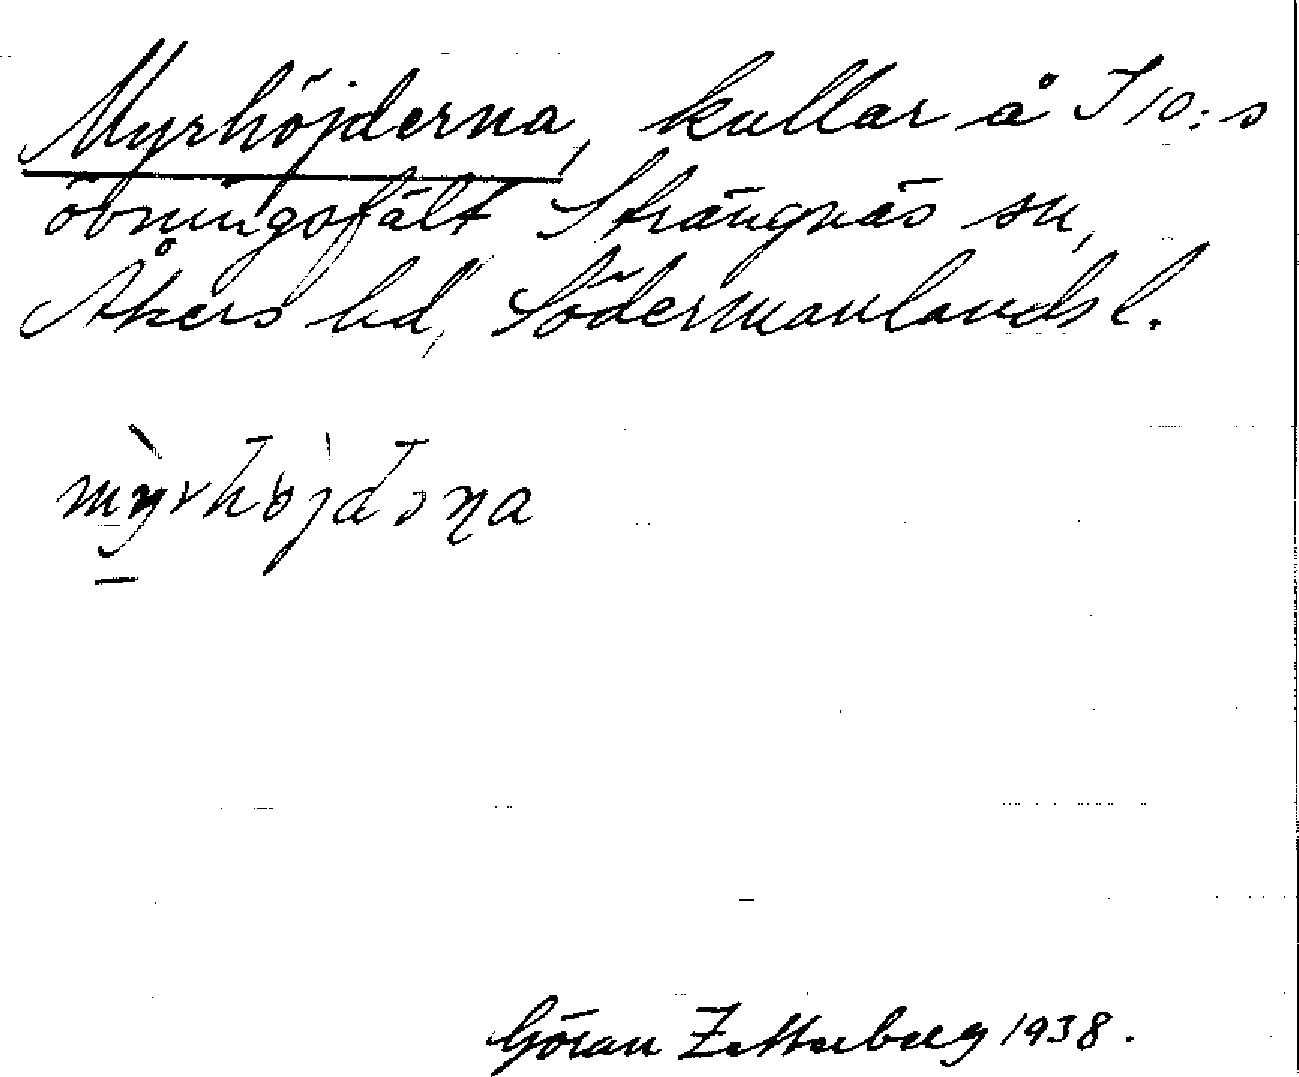 Myrhöjderna, kullar å I 10:s
övningsfält Strängnäs sn,
Åkers hd, Södermanlands l.
mỳrhö̀jdəɳa
Göran Zetterberg 1938.